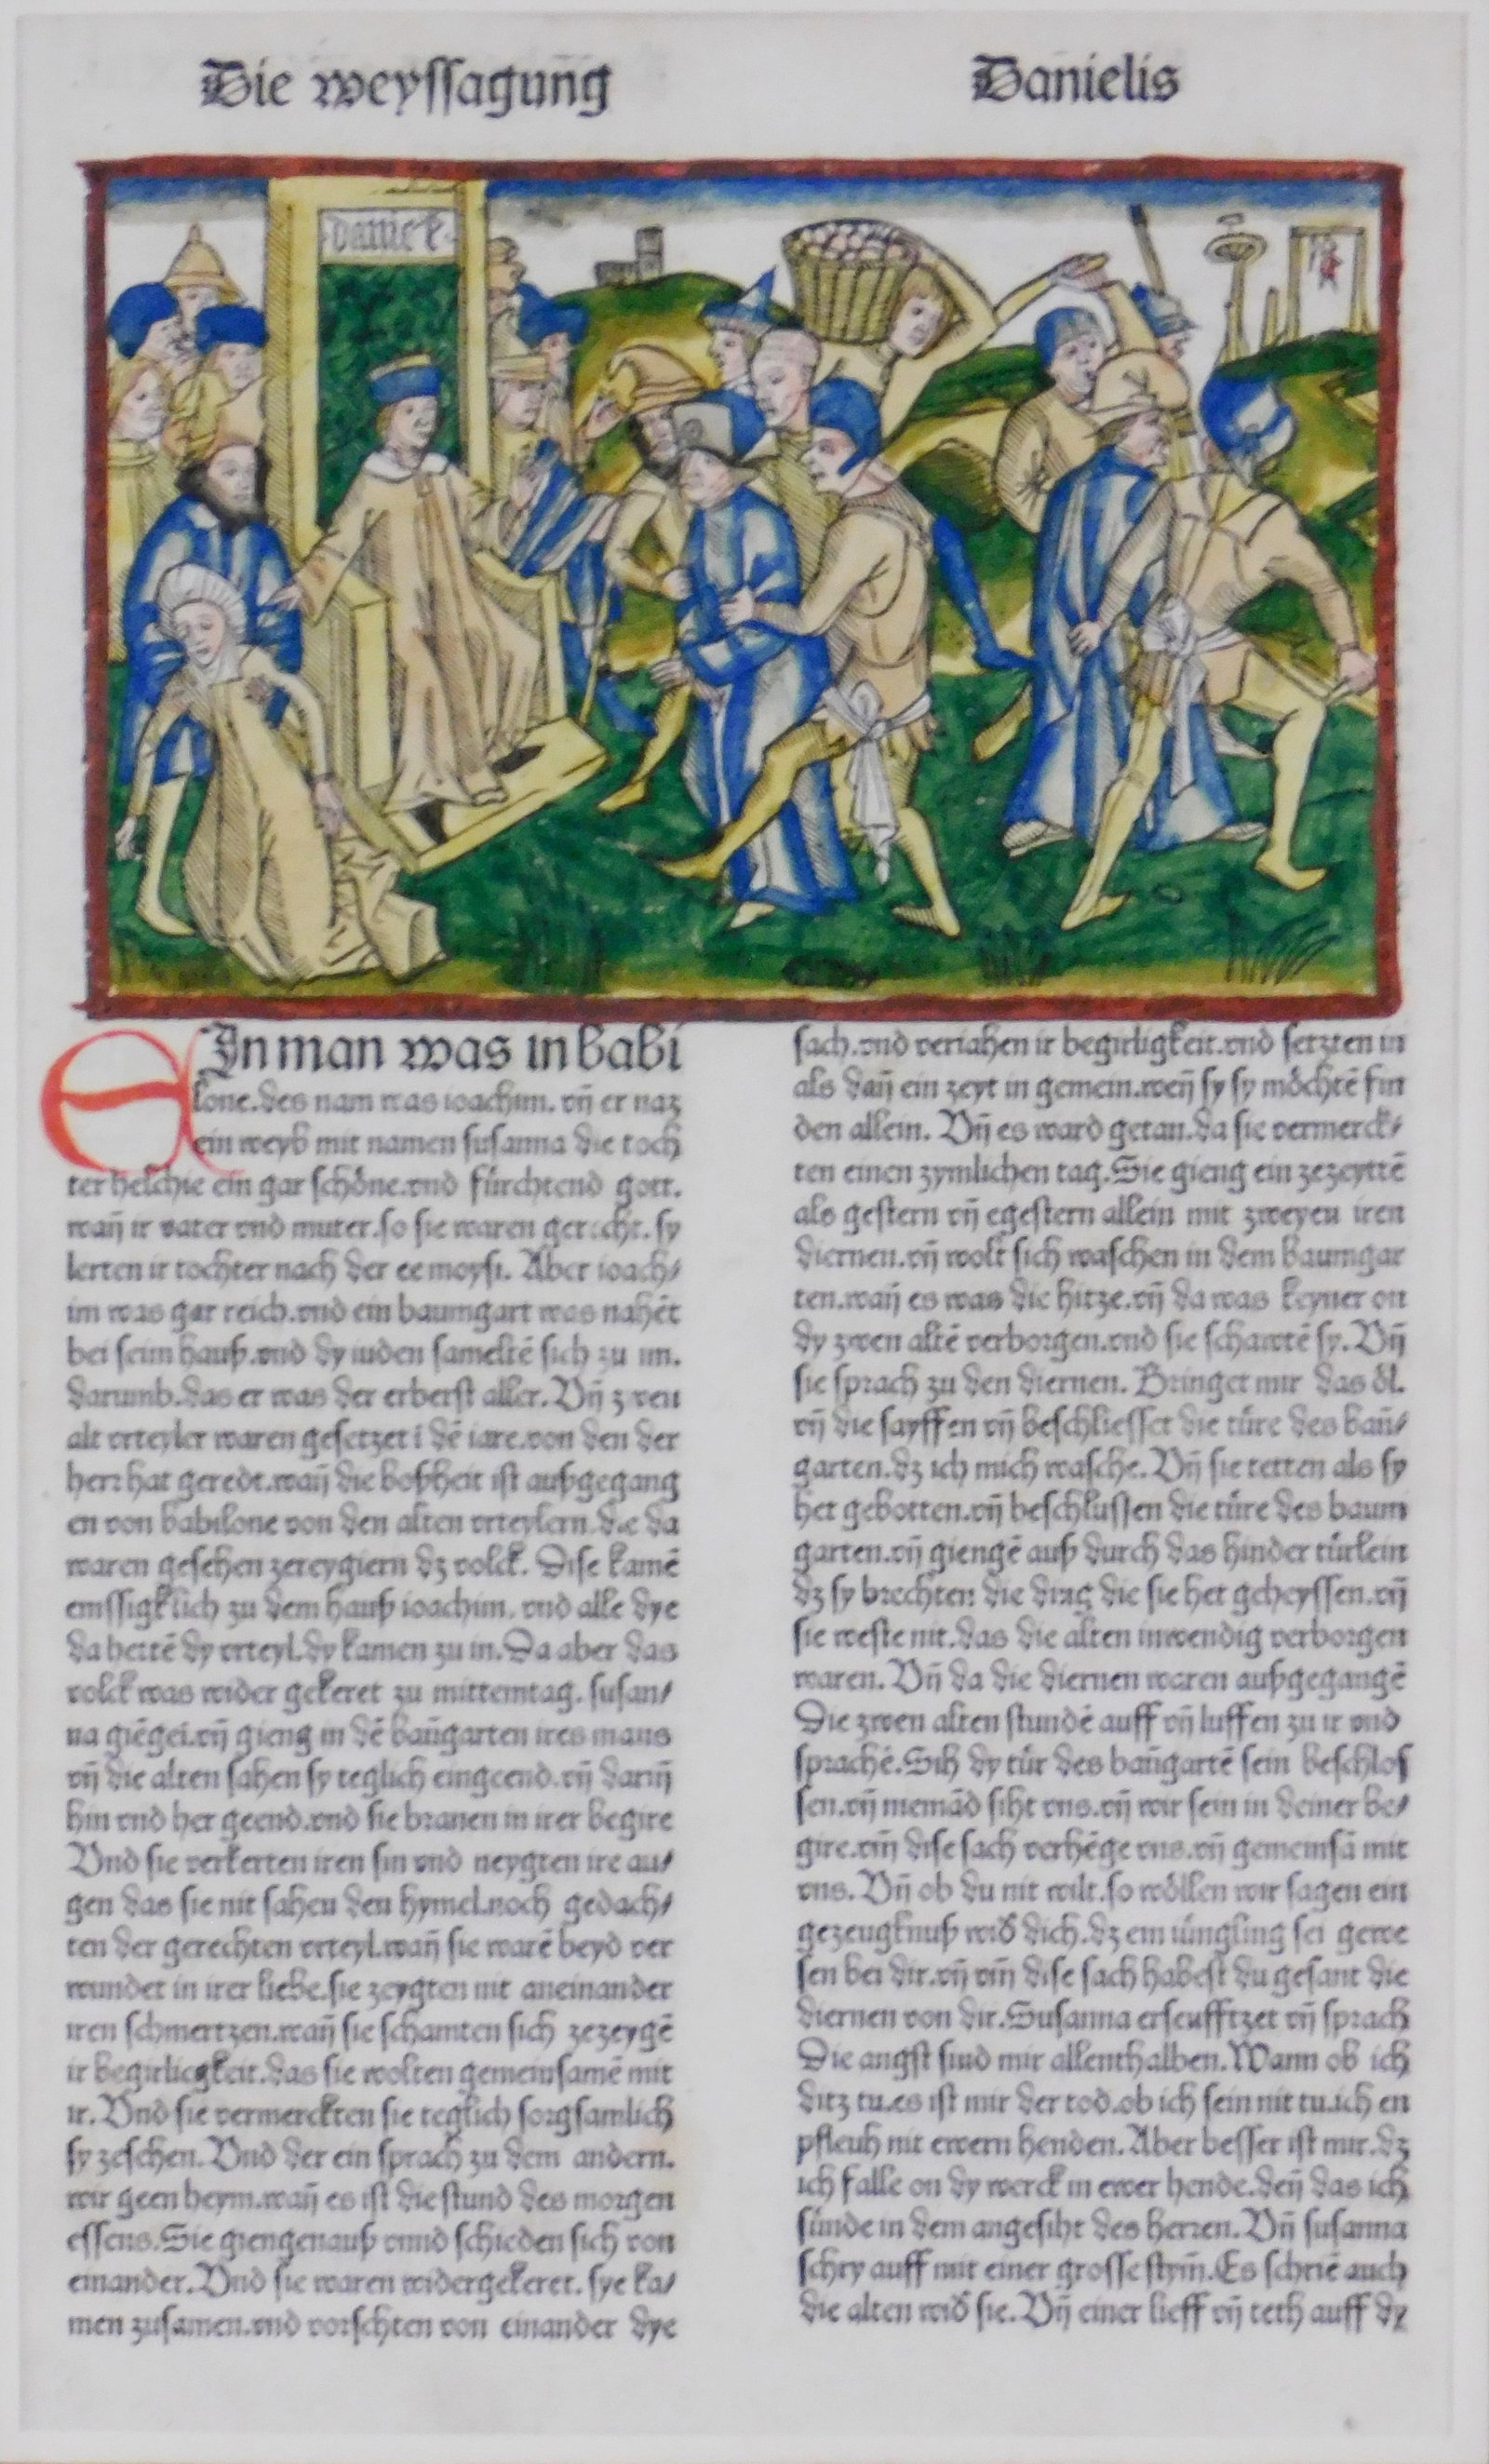 Die weyſſagung
Danielis
daniel
EIn man was in babi
lone.des nam was ioachim. vn̄ er naz
ein weyb mit namen ſuſanna die toch
ter helchie ein gar ſchöne.vnd fürchtend gott.
wan̄ ir vater vnd muter.ſo ſie waren gerecht.ſy
lerten ir tochter nach der ee moyſi. Aber ioach⸗
im was gar reich.vnd ein baumgart was nahēt
bei ſeim hauß.vnd dy iuden ſameltē ſich zu im.
darumb.das er was der erberſt aller. Vn̄ zwen
alt vrteyler waren geſetzet i dē iare.von den der
herr hat geredt.wan̄ die boßheit iſt außgegang
en von babilone von den alten vrteylern.die da
waren geſehen zereygiern dz volck. Diſe kamē
emſſigklich zu dem hauß ioachim. vnd alle dye
da hettē dy vrteyl.dy kamen zu in.Da aber das
volck was wider gekeret zu mittemtag. ſuſan⸗
na giēgei.vn̄ gieng in dē baūgarten ires mans
vn̄ die alten ſahen ſy teglich eingeend.vn̄ darin̄
hin vnd her geend.vnd ſie branen in irer begire
Vnd ſie verkerten iren ſin vnd neygten ire au⸗
gen das ſie nit ſahen den hymel.noch gedach⸗
ten der gerechten vrteyl.wan̄ ſie warē beyd ver
wundet in irer liebe.ſie zeygten nit aneinander
iren ſchmertzen.wan̄ ſie ſchamten ſich zezeygē
ir begirligkeit.das ſie wolten gemeinſamē mit
ir. Vnd ſie vermerckten ſie teglich ſorgſamlich
ſy zeſehen. Vnd der ein ſprach zu dem andern.
wir geen heym.wan̄ es iſt die ſtund des morgen
eſſens.Sie giengen auß vnnd ſchieden ſich von
einander.Vnd ſie waren widergekeret. ſye ka⸗
men zuſamen.vnd vorſchten von einander dye
ſach.vnd veriahen ir begirligkeit.vnd ſetzten in
als dan̄ ein zeyt in gemein.wen̄ ſy ſy möchtē fin
den allein. Vn̄ es ward getan.da ſie vermerck⸗
ten einen zymlichen tag.Sie gieng ein zezeyttē
als geſtern vn̄ egeſtern allein mit zweyen iren
diernen.vn̄ wolt ſich waſchen in dem baumgar
ten.wan̄ es was die hitze.vn̄ da was keyner on
dy zwen altē verborgen.vnd ſie ſchawtē ſy. Vn̄
ſie ſprach zu den diernen. Bringet mir das öl.
vn̄ die ſayffen vn̄ beſchlieſſet die türe des baū⸗
garten.dz ich mich waſche. Vn̄ ſie tetten als ſy
het gebotten.vn̄ beſchluſſen die türe des baum
garten.vn̄ giengē auß durch das hinder türlein
dz ſy brechten die ding die ſie het geheyſſen.vn̄
ſie weſte nit.das die alten inwendig verborgen
waren. Vn̄ da die diernen waren außgegangē
Die zwen alten ſtundē auff vn̄ luffen zu ir vnd
ſprachē.Sih dy tür des baūgartē ſein beſchloſ
ſen.vn̄ niemād ſiht vns.vn̄ wir ſein in deiner be⸗
gire.vm̄ diſe ſach verhēge vns.vn̄ gemeinſā mit
vns. Vn̄ ob du nit wilt.ſo wöllen wir ſagen ein
gezeugknuß wid̄ dich.dz ein iüngling ſei gewe
ſen bei dir.vn̄ vm̄ diſe ſach habeſt du geſant die
diernen von dir.Suſanna erſeufftzet vn̄ ſprach
Die angſt ſind mir allenthalben.Wann ob ich
ditz tu.es iſt mir der tod.ob ich ſein nit tu.ich en
pfleuh nit ewern henden. Aber beſſer iſt mir.dz
ich falle on dy werck in ewer hende.den̄ das ich
ſünde in dem angeſiht des herren. Vn̄ ſuſanna
ſchry auff mit einer groſſe ſtym̄.Es ſchriē auch
die alten wid̄ ſie. Vn̄ einer lieff vn̄ teth auff dy